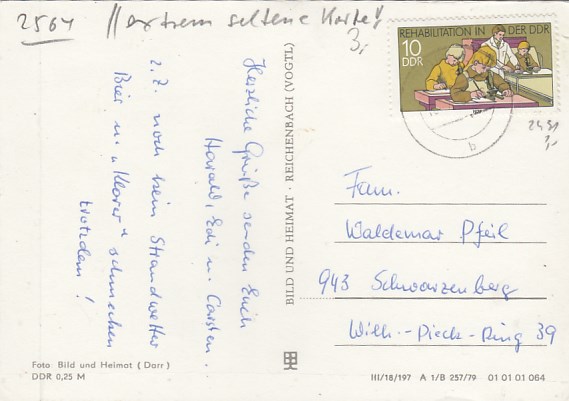 2564 "extrem seltene Karte"
3,-
REHABILITATION IN DER DDR
10
DDR
2431
3,-
b
z. Z. noch kein Strandwetter
Bier u. "Klarer" schmecken
trotzdem!
Herzliche Grüße senden Euch
Harald, Edi u. Carsten.
BILD UND HEIMAT · REICHENBACH (VOGTL)
Fam.
Waldemar Pfeil
943 Schwarzenberg
Wilh.-Pieck-Ring 39
Foto Bild und Heimat (Darr)
DDR 0,25 M
III/18/197 A 1/B 257/79 01 01 01 064